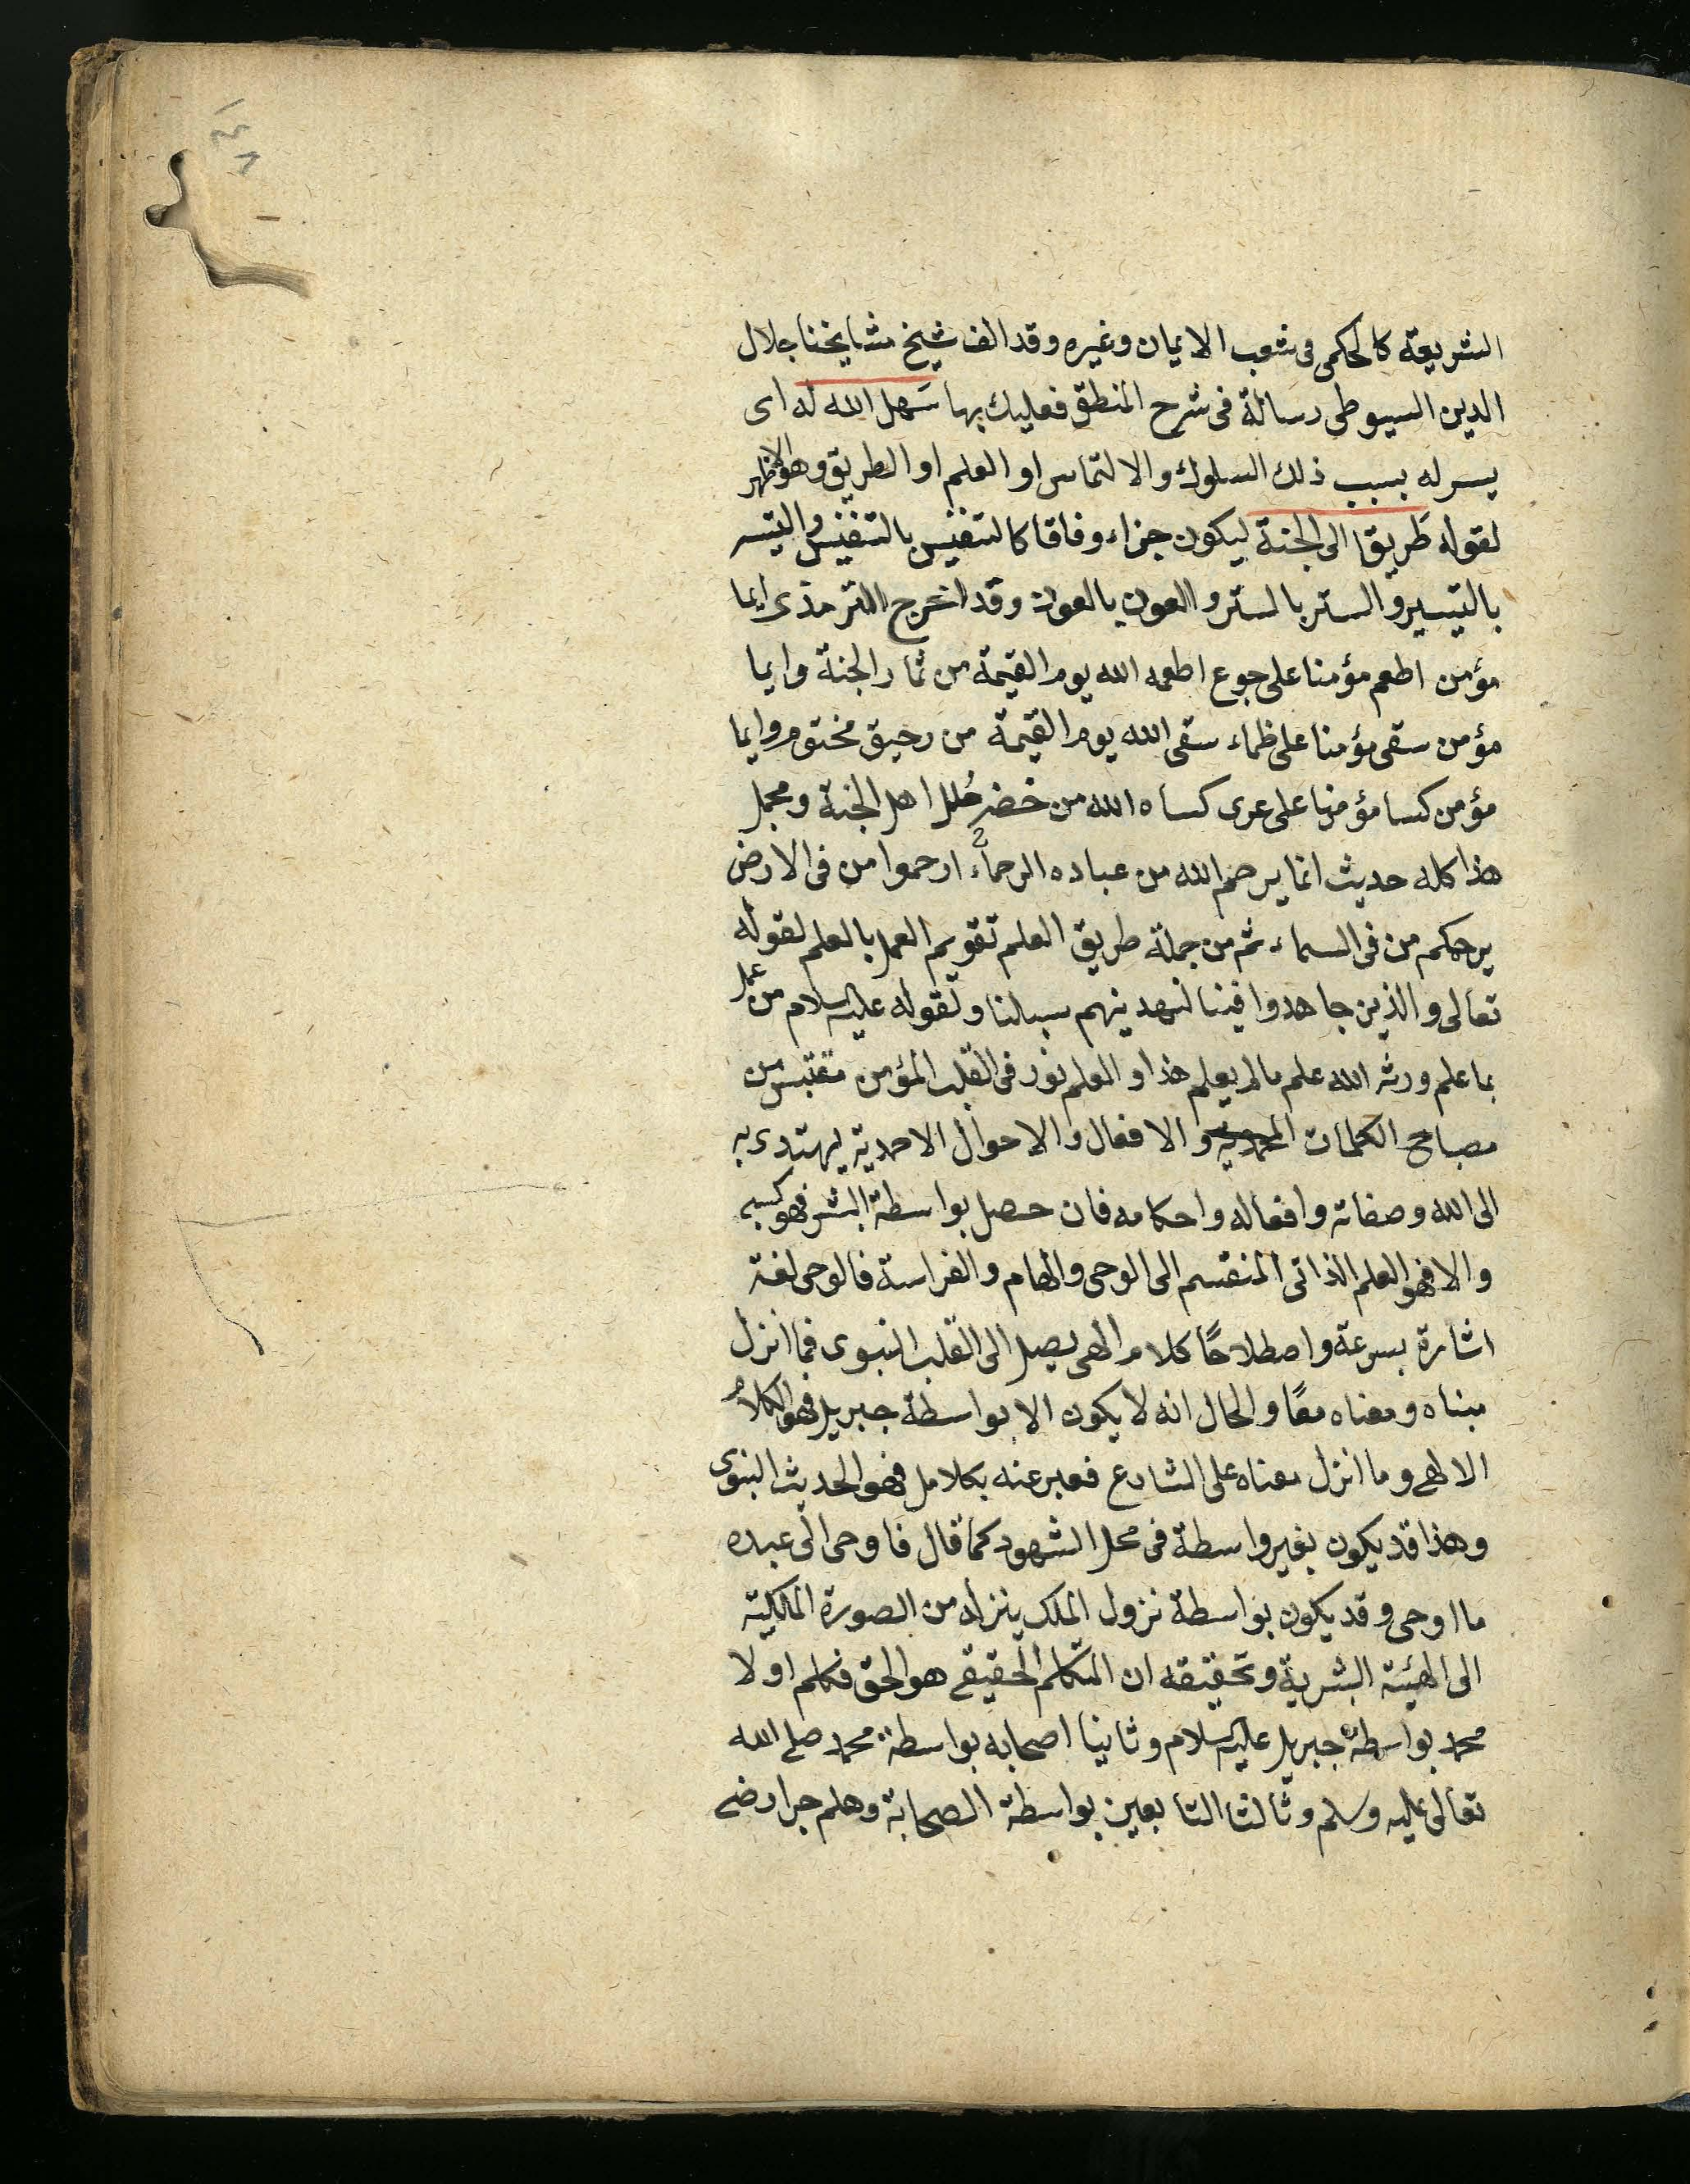 الشريعة كالحكمى فى شعب الايمان وغيره وقد الف شيخ مشايخنا جلال
الدين السيوطى رسالة فى شرح المنطق فعليك بها سَهل الله له اى
يسر له بسبب ذلك السلوك والالتماس او العلم او الطريق وهو الاظهر
لقوله طَريقا الى الجنة ليكون جزاء وفاقا كالتنفيس بالتنفيس والتيسير
بالتيسير والستر بالستر والعون بالعون وقد اخرج الترمذى ايما
مؤمن اطعم مؤمنا على جوع اطعمه الله يوم القيمة من ثمار الجنة وايما
مؤمن سقى مؤمنا على ظماء سقى الله يوم القيمة من رحيق مختوم وايما
مؤمن كسا مؤمنا على عرى كساه الله من خضر حُلل اهل الجنة ومجمل
هذا كله حديث انما يرحم الله من عباده الرحماء ارحموا من فى الارض
يرحمكم من فى السماء ثم من جملة طريق العلم تقويم العمل بالعلم لقوله
تعالى والذين جاهدوا فينا لنهدينهم سبلنا ولقوله عليه السلام من عمل
بما علم ورثه الله علم ما لم يعلم هذا والعلم نور فى القلب المؤمن مقتبس من
مصابيح الكلمات المحمدية والافعال والاحوال الاحمدية يهتدى به
الى الله وصفاته وافعاله واحكامه فان حصل بواسطة البشر فهو كسبى
والا فهو العلم الذاتى المنقسم الى الوحى والهام والفراسة فالوحى لغة
اشارة بسرعة واصطلاحًا كلام الهى يصل الى القلب النبوى فما انزل
مبناه ومعناه معًا والحال انه لا يكون الا بواسطة جبريل فهو الكلامُ
الالهى وما انزل معناه على الشارع فعبر عنه بكلامه فهو الحديث النبوى
وهذا قد يكون بغير واسطة فى محل الشهود كما قال فاوحى الى عبده
ما اوحى وقد يكون بواسطة نزول الملك ينزله من الصورة الملكية
الى الهيئة البشرية وتحقيقه ان المتكلم الحقيقى هو الحق فكلم اولا
محمد بواسطة جبريل عليه السلام وثانيا اصحابه بواسطة محمد صلى الله
تعالى عليه وسلم وثالثا التابعين بواسطة الصحابة وهلم جرا رضى